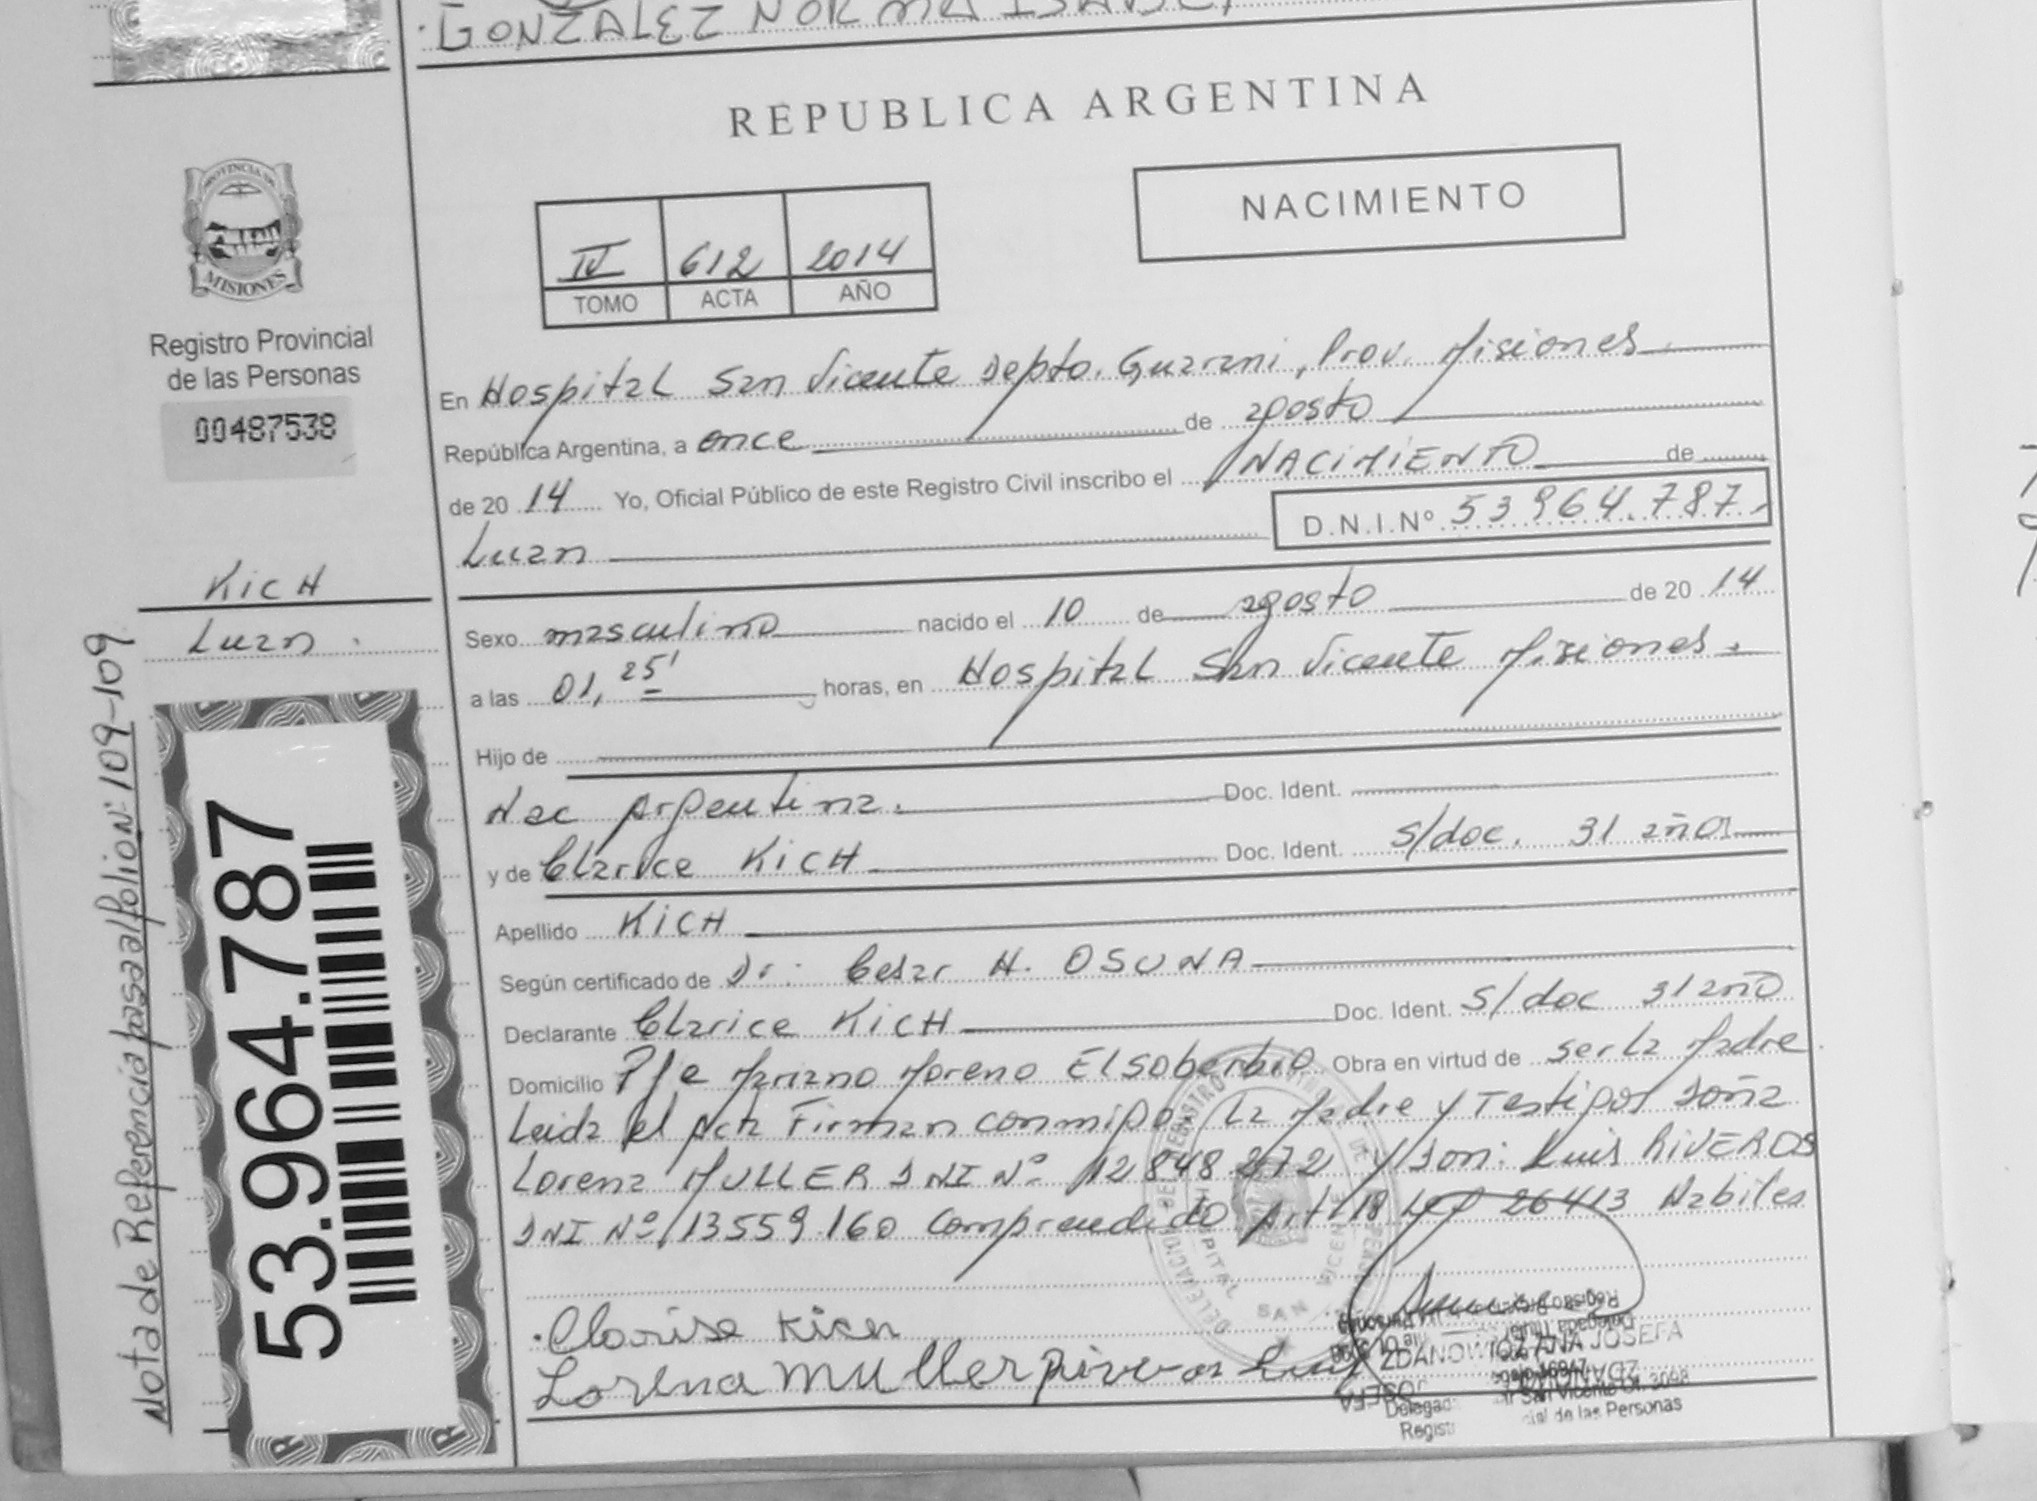 GONZALEZ NORMA ISABEL
REPUBLICA ARGENTINA
NACIMIENTO
IV 612 2014
TOMO ACTA AÑO
PROVINCIA DE
MISIONES
Registro Provincial
de las Personas
00487538
KICH
Luan.
Nota de Referencia pasa al folio Nº 109-109
53.964.787
En Hospital San Vicente Depto. Guarani, Prov. Misiones
República Argentina, a once de agosto
de 20 14 Yo, Oficial Público de este Registro Civil inscribo el NACIMIENTO de
Luan D.N.I.Nº 53964.787
Sexo masculino nacido el 10 de agosto de 20 14
a las 01,25' horas, en Hospital San Vicente Misiones.
Hijo de
Nac Argentina. Doc. Ident.
y de Clarice KICH Doc. Ident. s/doc. 31 años
Apellido KICH
Según certificado de Dr: Cesar H. OSUNA
Declarante Clarice KICH Doc. Ident. S/doc 31 año
Domicilio Pje Mariano Moreno El Soberbio Obra en virtud de ser la Madre
Leida el Acta Firman conmigo, la Madre y Testigos Doña
Lorena MULLER DNI Nº 12848272 y Don: Luis RIVEROS
DNI Nº 13559.160 Comprendido Art 18 Ley 26413 Habiles
Clarise Kich
Lorena Muller Riveros Luis
ZDANOWICZ ANA JOSEFA
San Vicente Of. 3098
Registro
cial de las Personas